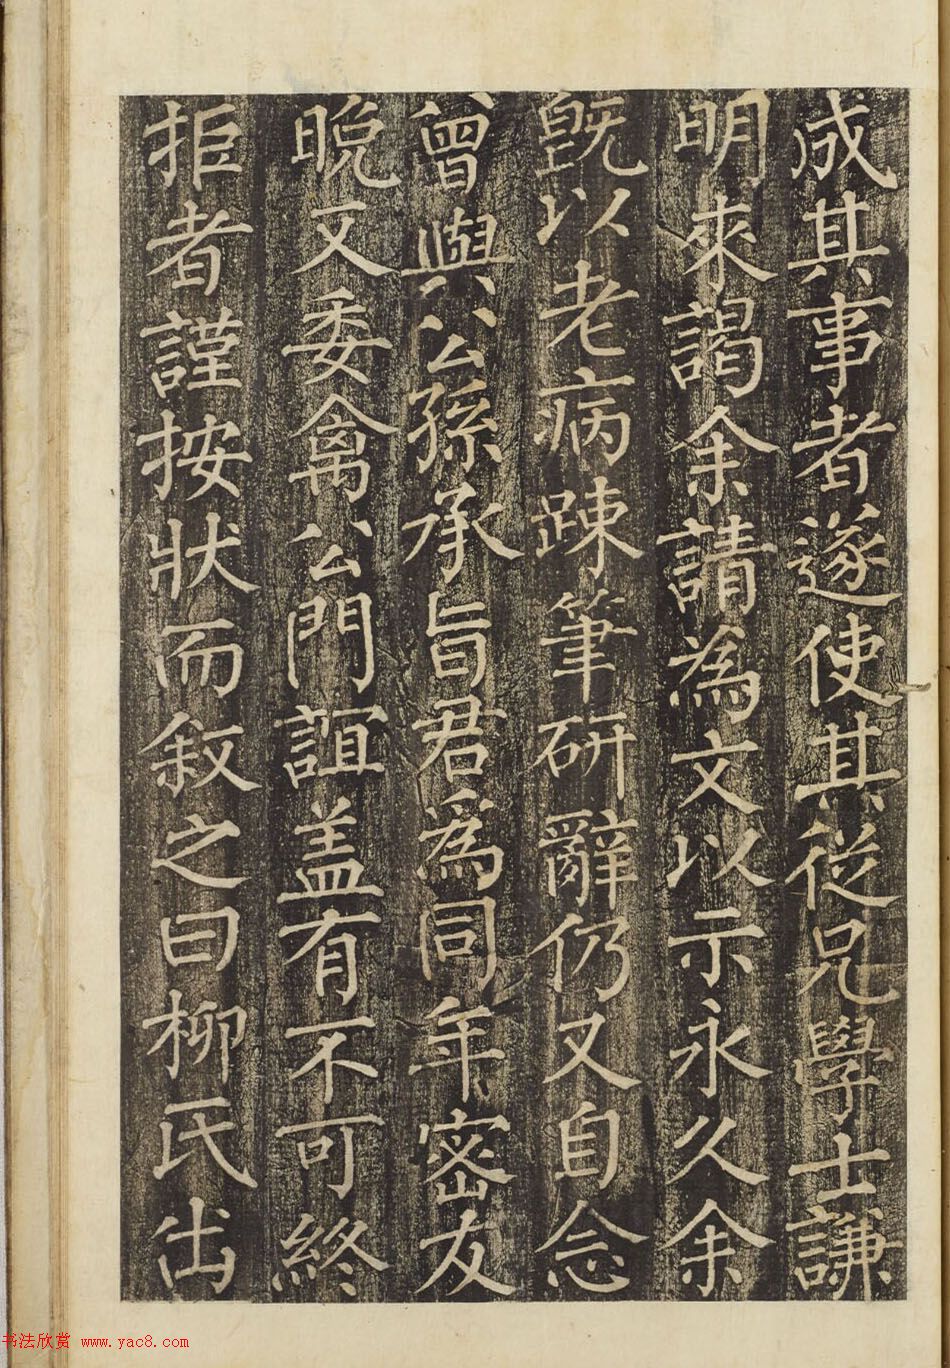 成其事者遂使其從兄學士謙
明來謁余請為文以示永久余
既以老病踈筆研辭仍又自念
曾與公孫承旨君為同年密友
晚又委禽公門誼盖有不可終
拒者謹按狀而敘之曰柳氏出
书法欣赏 www.yac8.com